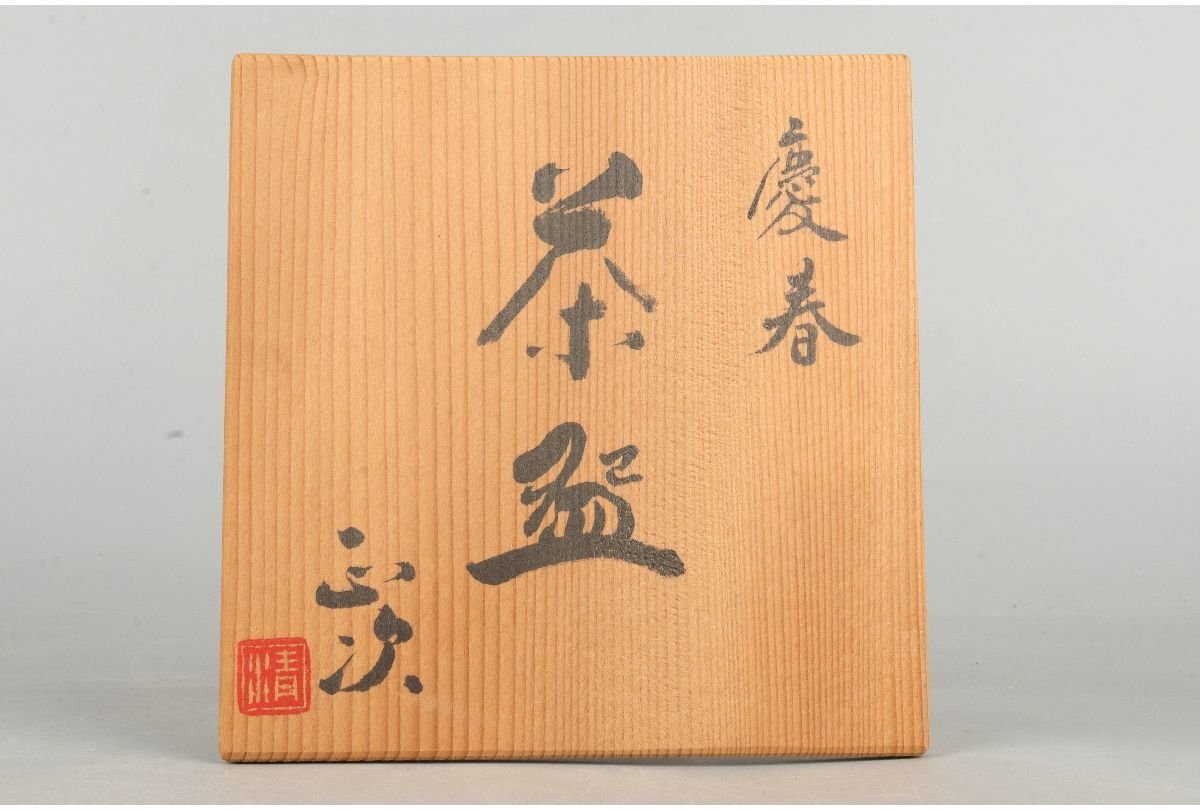 慶春
茶盌
正次
清